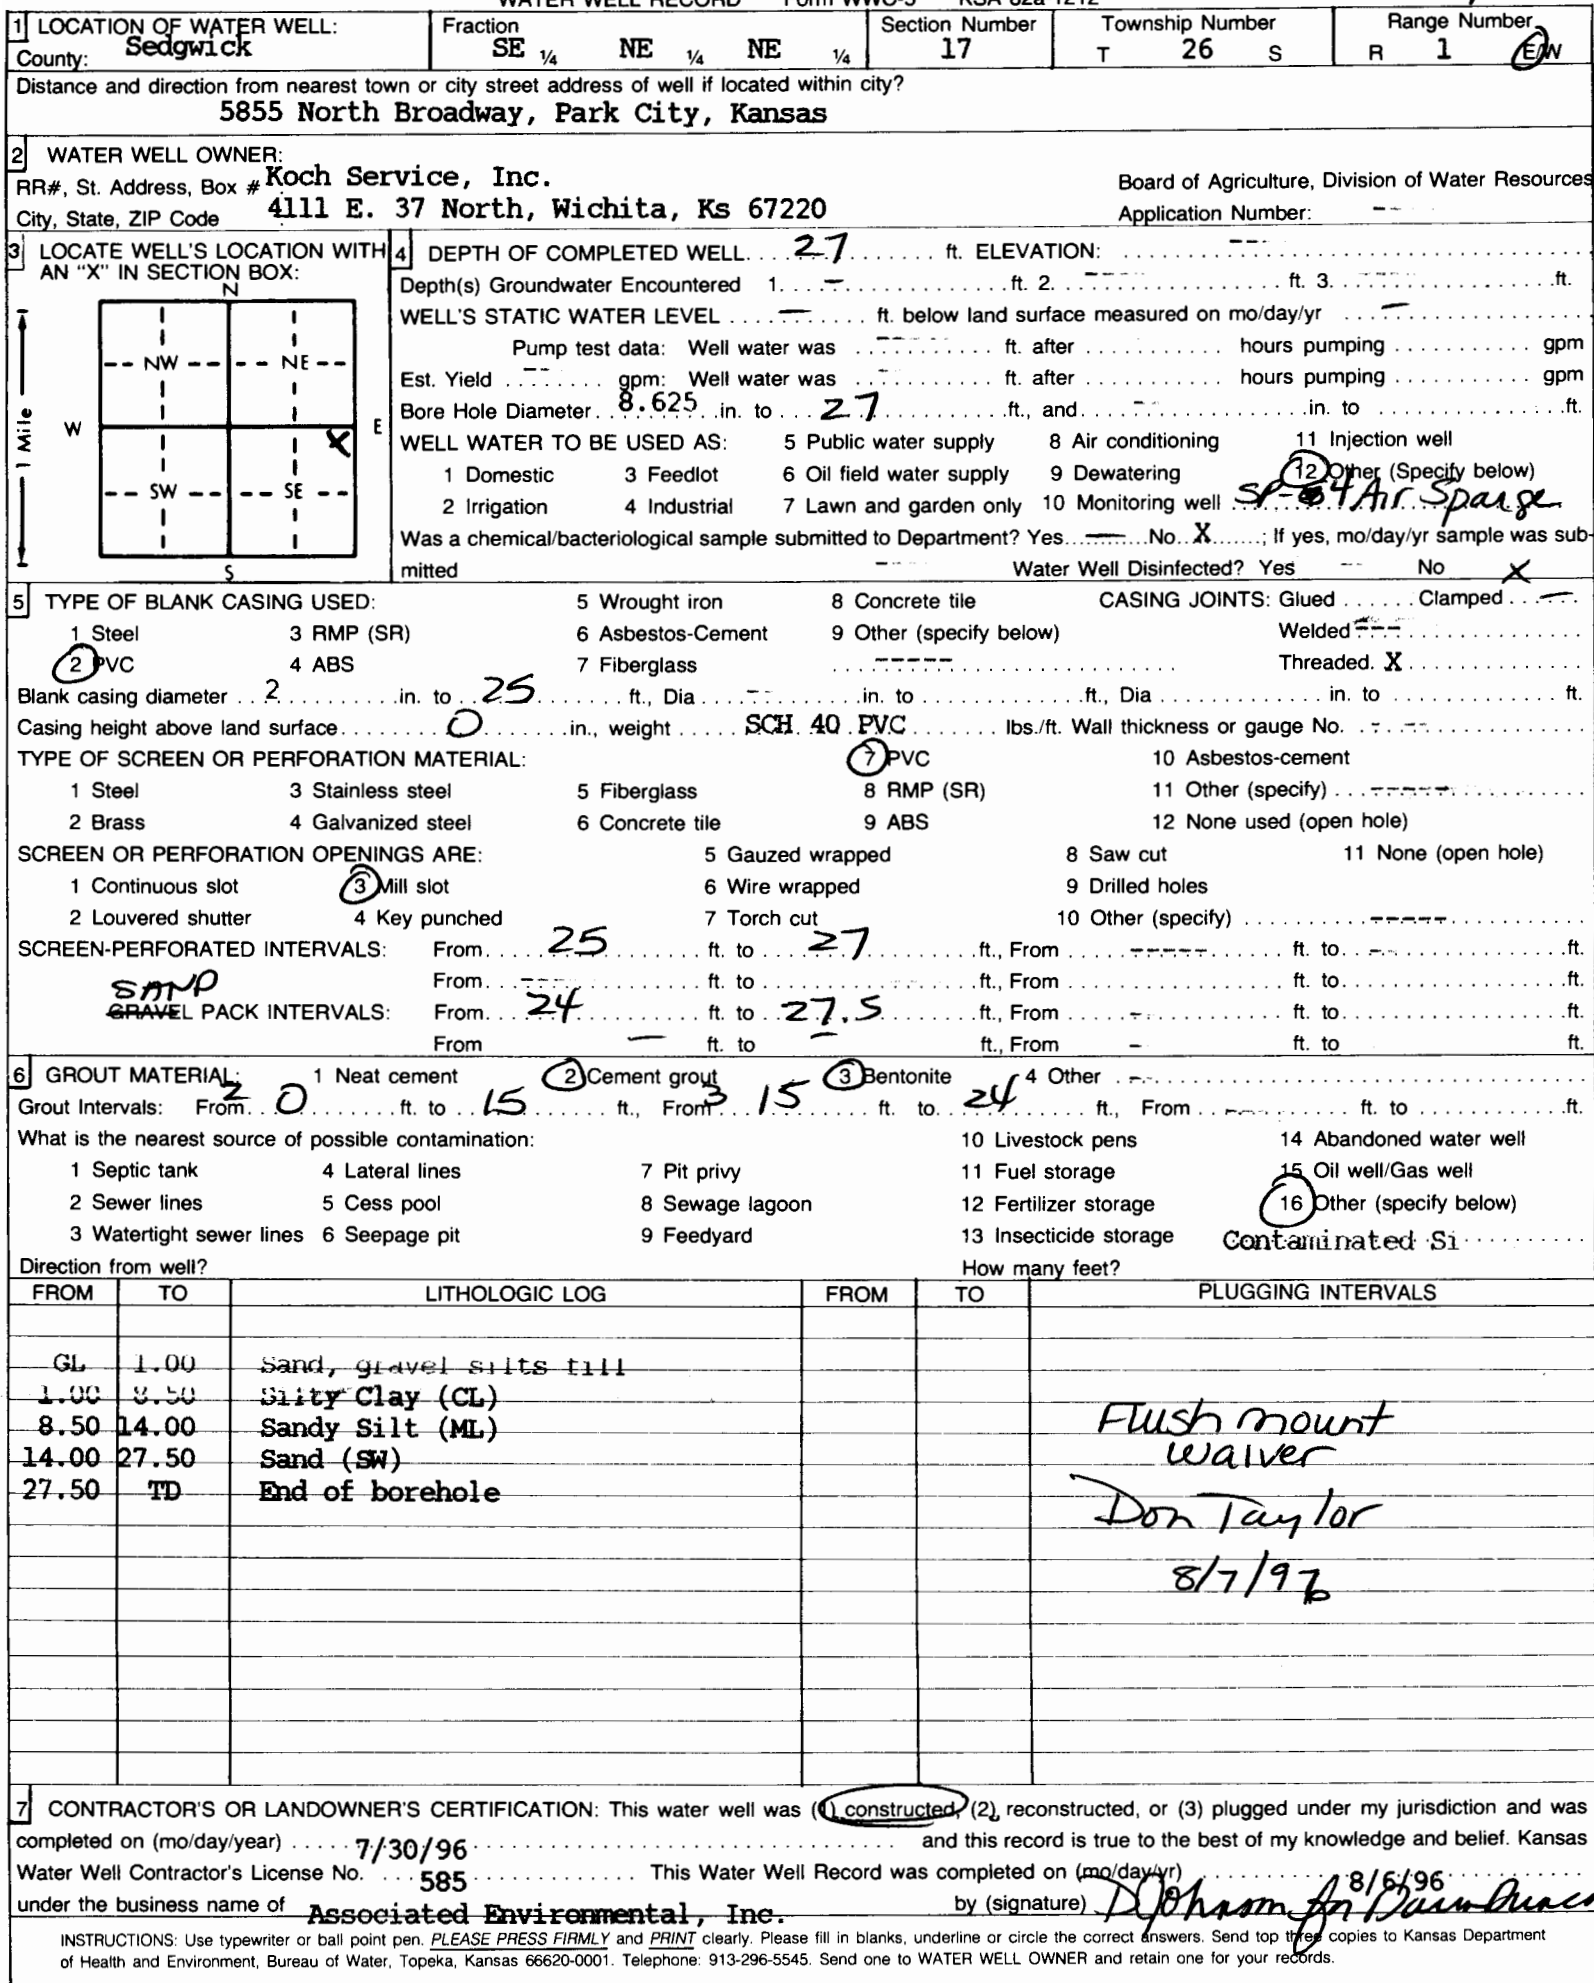 WATER WELL RECORD Form WWC-5 KSA 82a-1212
1 LOCATION OF WATER WELL: Fraction Section Number Township Number Range Number
County: Sedgwick SE ¼ NE ¼ NE ¼ 17 T 26 S R 1 E/W
Distance and direction from nearest town or city street address of well if located within city?
5855 North Broadway, Park City, Kansas
2 WATER WELL OWNER:
RR#, St. Address, Box # Koch Service, Inc. Board of Agriculture, Division of Water Resources
City, State, ZIP Code 4111 E. 37 North, Wichita, Ks 67220 Application Number: --
3 LOCATE WELL'S LOCATION WITH AN "X" IN SECTION BOX:
N
NW NE
W X E
1 Mile
SW SE
S
4 DEPTH OF COMPLETED WELL 27 ft. ELEVATION: ---
Depth(s) Groundwater Encountered 1. - ft. 2. ---- ft. 3. ---- ft.
WELL'S STATIC WATER LEVEL — ft. below land surface measured on mo/day/yr —
Pump test data: Well water was -- ft. after hours pumping gpm
Est. Yield -- gpm: Well water was - ft. after hours pumping gpm
Bore Hole Diameter 8.625 in. to 27 ft., and -- in. to ft.
WELL WATER TO BE USED AS: 5 Public water supply 8 Air conditioning 11 Injection well
1 Domestic 3 Feedlot 6 Oil field water supply 9 Dewatering 12 Other (Specify below)
2 Irrigation 4 Industrial 7 Lawn and garden only 10 Monitoring well SP-4 Air Sparge
Was a chemical/bacteriological sample submitted to Department? Yes — No X ; If yes, mo/day/yr sample was sub-
mitted -- Water Well Disinfected? Yes -- No X
5 TYPE OF BLANK CASING USED: 5 Wrought iron 8 Concrete tile CASING JOINTS: Glued Clamped —
1 Steel 3 RMP (SR) 6 Asbestos-Cement 9 Other (specify below) Welded ---
2 PVC 4 ABS 7 Fiberglass ----- Threaded. X
Blank casing diameter 2 in. to 25 ft., Dia -- in. to ft., Dia in. to ft.
Casing height above land surface 0 in., weight SCH 40 PVC lbs./ft. Wall thickness or gauge No. - --
TYPE OF SCREEN OR PERFORATION MATERIAL: 7 PVC 10 Asbestos-cement
1 Steel 3 Stainless steel 5 Fiberglass 8 RMP (SR) 11 Other (specify) -----
2 Brass 4 Galvanized steel 6 Concrete tile 9 ABS 12 None used (open hole)
SCREEN OR PERFORATION OPENINGS ARE: 5 Gauzed wrapped 8 Saw cut 11 None (open hole)
1 Continuous slot 3 Mill slot 6 Wire wrapped 9 Drilled holes
2 Louvered shutter 4 Key punched 7 Torch cut 10 Other (specify) -----
SCREEN-PERFORATED INTERVALS: From 25 ft. to 27 ft., From ----- ft. to -- ft.
From ---- ft. to ft., From ft. to ft.
SAND
GRAVEL PACK INTERVALS: From 24 ft. to 27.5 ft., From - ft. to ft.
From — ft. to — ft., From - ft. to ft.
6 GROUT MATERIAL: 1 Neat cement 2 Cement grout 3 Bentonite 4 Other --
Grout Intervals: From 2 0 ft. to 15 ft., From 3 15 ft. to 24 ft., From -- ft. to ft.
What is the nearest source of possible contamination: 10 Livestock pens 14 Abandoned water well
1 Septic tank 4 Lateral lines 7 Pit privy 11 Fuel storage 15 Oil well/Gas well
2 Sewer lines 5 Cess pool 8 Sewage lagoon 12 Fertilizer storage 16 Other (specify below)
3 Watertight sewer lines 6 Seepage pit 9 Feedyard 13 Insecticide storage Contaminated Si
Direction from well? How many feet?
FROM TO LITHOLOGIC LOG FROM TO PLUGGING INTERVALS
GL 1.00 Sand, gravel silts till
1.00 8.50 Silty Clay (CL)
8.50 14.00 Sandy Silt (ML)
14.00 27.50 Sand (SW)
27.50 TD End of borehole
Flush mount
waiver
Don Taylor
8/7/96
7 CONTRACTOR'S OR LANDOWNER'S CERTIFICATION: This water well was (1) constructed, (2) reconstructed, or (3) plugged under my jurisdiction and was
completed on (mo/day/year) 7/30/96 and this record is true to the best of my knowledge and belief. Kansas
Water Well Contractor's License No. 585 This Water Well Record was completed on (mo/day/yr) 8/6/96
under the business name of Associated Environmental, Inc. by (signature) D Johnson for
INSTRUCTIONS: Use typewriter or ball point pen. PLEASE PRESS FIRMLY and PRINT clearly. Please fill in blanks, underline or circle the correct answers. Send top three copies to Kansas Department
of Health and Environment, Bureau of Water, Topeka, Kansas 66620-0001. Telephone: 913-296-5545. Send one to WATER WELL OWNER and retain one for your records.